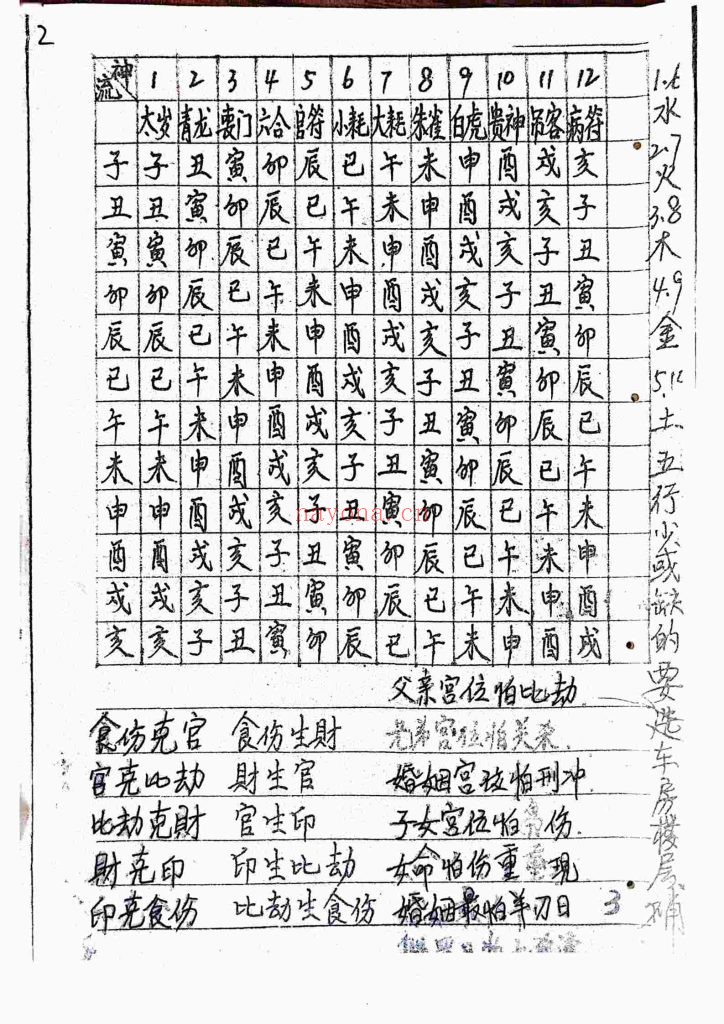 2
流神 1 2 3 4 5 6 7 8 9 10 11 12
太岁 青龙 丧门 六合 官符 小耗 大耗 朱雀 白虎 贵神 吊客 病符
子 子 丑 寅 卯 辰 巳 午 未 申 酉 戌 亥
丑 丑 寅 卯 辰 巳 午 未 申 酉 戌 亥 子
寅 寅 卯 辰 巳 午 未 申 酉 戌 亥 子 丑
卯 卯 辰 巳 午 未 申 酉 戌 亥 子 丑 寅
辰 辰 巳 午 未 申 酉 戌 亥 子 丑 寅 卯
巳 巳 午 未 申 酉 戌 亥 子 丑 寅 卯 辰
午 午 未 申 酉 戌 亥 子 丑 寅 卯 辰 巳
未 未 申 酉 戌 亥 子 丑 寅 卯 辰 巳 午
申 申 酉 戌 亥 子 丑 寅 卯 辰 巳 午 未
酉 酉 戌 亥 子 丑 寅 卯 辰 巳 午 未 申
戌 戌 亥 子 丑 寅 卯 辰 巳 午 未 申 酉
亥 亥 子 丑 寅 卯 辰 巳 午 未 申 酉 戌
父亲宫位怕比劫
食伤克官 食伤生財 兄弟宫位怕关杀
官克比劫 財生官 婚姻宫位怕刑冲
比劫克財 官生印 子女宫位怕 伤
財克印 印生比劫 女命怕伤重 現
印克食伤 比劫生食伤 婚姻最怕羊刃日
3
1.6水 2.7火 3.8木 4.9金 5.10土 五行少或缺的要选车房楼层补